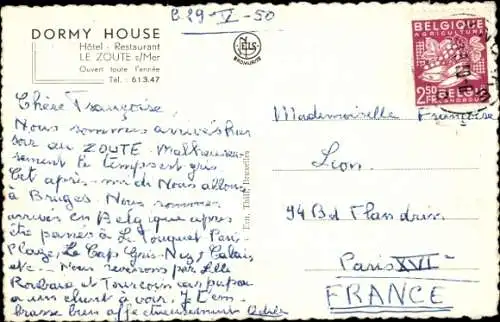 B 29-V-50
DORMY HOUSE
Hôtel - Restaurant
LE ZOUTE s/Mer
Ouvert toute l'année
Tél. : 613.47
NELS
BROMURITE
BELGIQUE
AGRICULTURE
2.50 BELGIË
FR. LANDBOUW
Chère Françoise,
Nous sommes arrivés hier
soir au ZOUTE. Malheureu-
sement le temps est gris
Cet après-midi Nous allons
à Bruges. Nous sommes
arrivés en Belgique après
être passés à Le Touquet Paris-
Plage, Le Cap Gris-Nez, Calais,
etc... Nous revenons par Lille
Roubaix et Tourcoing car papa
a un client à voir. Je t'em-
brasse bien affectueusement
Ern. Thill, Bruxelles
Mademoiselle Françoise
Léon
94 Bd Flandrin
Paris XVI
FRANCE